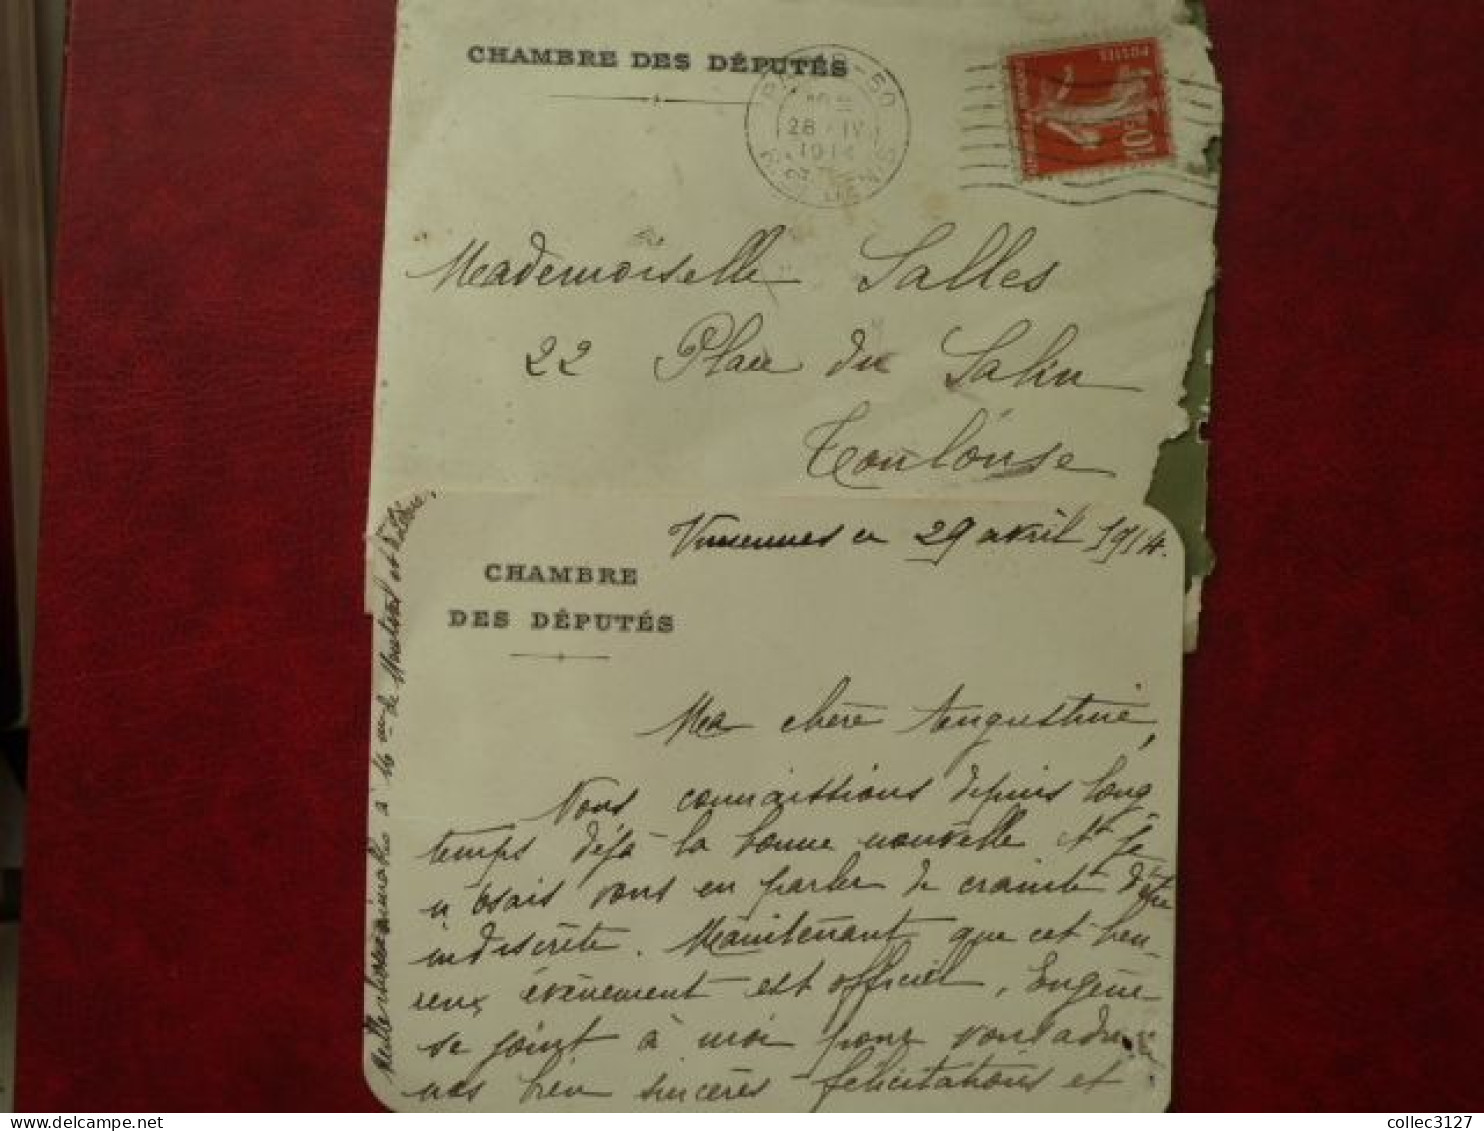 CHAMBRE DES DÉPUTÉS
28 IV
1914
POSTES
10c
Mademoiselle Salles
22 Place du Salin
Toulouse
Vincennes ce 29 avril 1914.
CHAMBRE
DES DÉPUTÉS
Ma chère Augustine,
Nous connaissions depuis long
temps déjà la bonne nouvelle et je
n'osais vous en parler de crainte d'être
indiscrète. Maintenant que cet heu-
reux évènement est officiel, Eugène
se joint à moi pour vous adresser
nos bien sincères félicitations et
Mille choses aimables à
collec3127